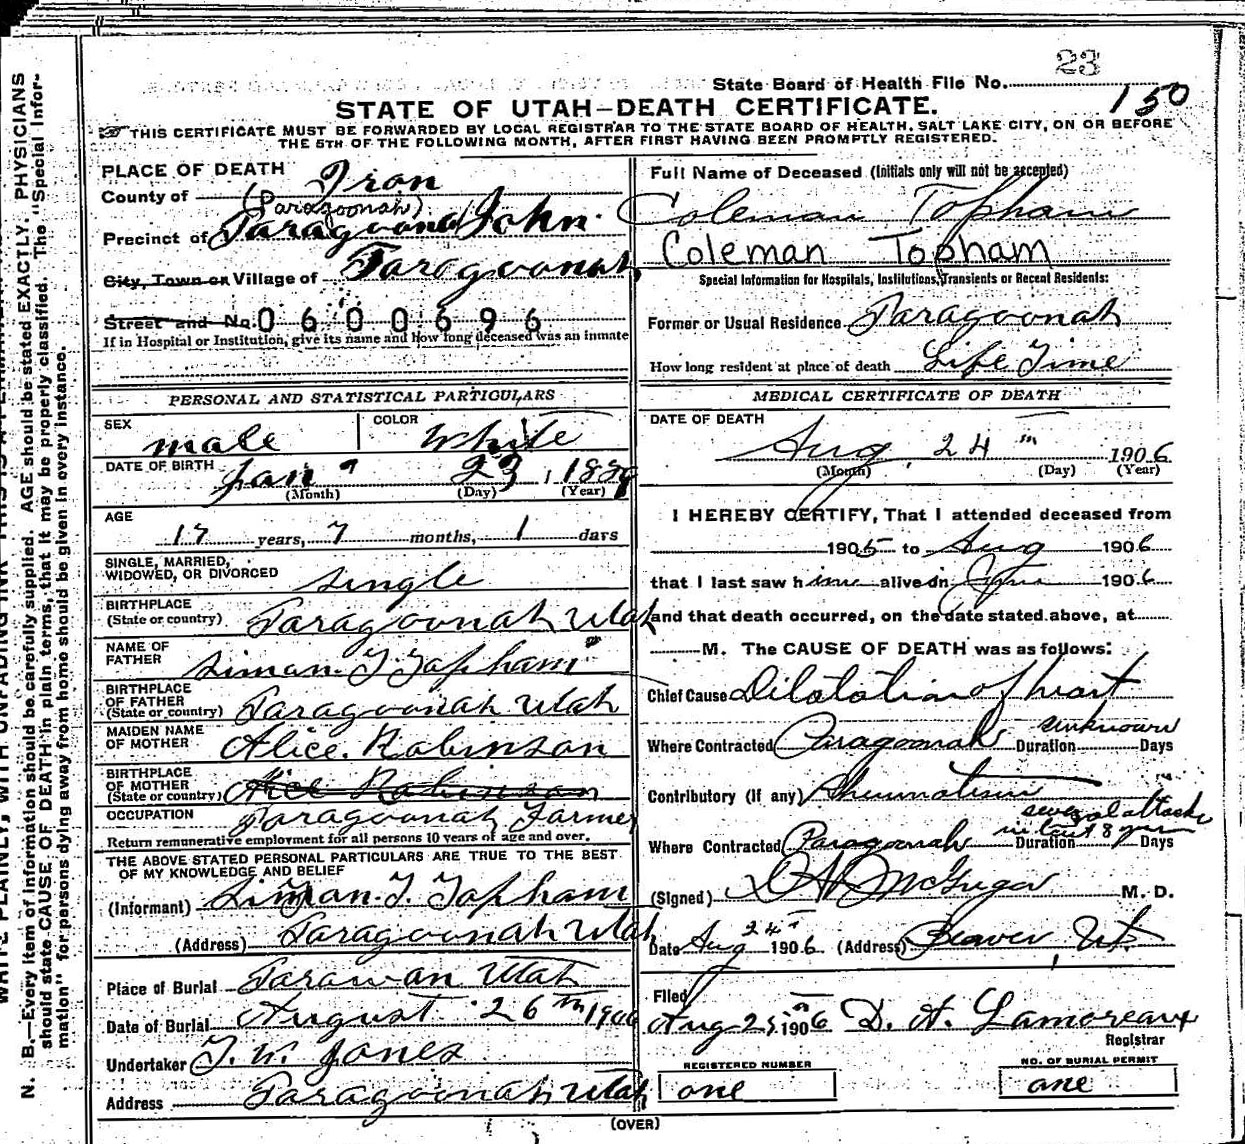 State Board of Health File No. 23
150
STATE OF UTAH—DEATH CERTIFICATE.
THIS CERTIFICATE MUST BE FORWARDED BY LOCAL REGISTRAR TO THE STATE BOARD OF HEALTH, SALT LAKE CITY, ON OR BEFORE
THE 5TH OF THE FOLLOWING MONTH, AFTER FIRST HAVING BEEN PROMPTLY REGISTERED.
PLACE OF DEATH
County of Iron
(Paragoonah)
Precinct of Paragoonah John
City, Town or Village of Paragoonah
Street and No. 0600696
If in Hospital or Institution, give its name and how long deceased was an inmate
PERSONAL AND STATISTICAL PARTICULARS
SEX male COLOR White
DATE OF BIRTH Jan 23, 1889
(Month) (Day) (Year)
AGE
17 years, 7 months, 1 days
SINGLE, MARRIED,
WIDOWED, OR DIVORCED single
BIRTHPLACE
(State or country) Paragoonah Utah
NAME OF
FATHER Siman. T. Topham
BIRTHPLACE
OF FATHER
(State or country) Paragoonah Utah
MAIDEN NAME
OF MOTHER Alice. Robinson
BIRTHPLACE
OF MOTHER
(State or country) Alice Robinson
OCCUPATION Paragoonah Farmer
Return remunerative employment for all persons 10 years of age and over.
THE ABOVE STATED PERSONAL PARTICULARS ARE TRUE TO THE BEST
OF MY KNOWLEDGE AND BELIEF
(Informant) Siman. T. Topham
(Address) Paragoonah Utah
Place of Burial Parawan Utah
Date of Burial August 26th 1906
Undertaker T. W. Jones
Address Paragoonah Utah
Full Name of Deceased (Initials only will not be accepted)
Coleman Topham
Coleman Topham
Special Information for Hospitals, Institutions, Transients or Recent Residents:
Former or Usual Residence Paragoonah
How long resident at place of death Life Time
MEDICAL CERTIFICATE OF DEATH
DATE OF DEATH
Aug. 24th 1906
(Month) (Day) (Year)
I HEREBY CERTIFY, That I attended deceased from
1905 to Aug 1906
that I last saw him alive on 1906
and that death occurred, on the date stated above, at
M. The CAUSE OF DEATH was as follows:
Chief Cause Dilatation of heart
Where Contracted Paragoonah Duration unknown Days
Contributory (If any) Rheumatism
several attacks
Where Contracted Paragoonah Duration in last 8 yrs Days
(Signed) McGregor M. D.
Date Aug 24th 1906 (Address) Beaver, Ut.
Filed
Aug 25th 1906 D. A. Lamoreaux
Registrar
REGISTERED NUMBER
one
NO. OF BURIAL PERMIT
one
(OVER)
N. B.—Every item of information should be carefully supplied. AGE should be stated EXACTLY. PHYSICIANS
should state CAUSE OF DEATH in plain terms, that it may be properly classified. The "Special Infor-
mation" for persons dying away from home should be given in every instance.